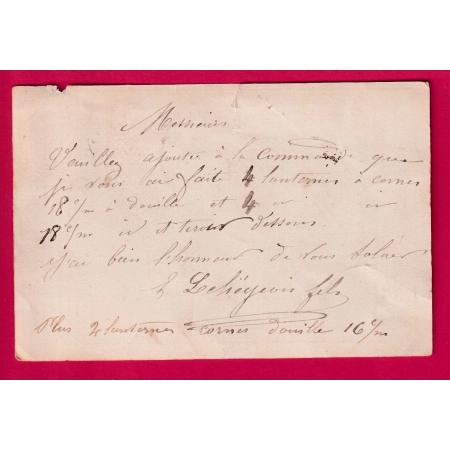 Messieurs
Veuillez ajouter à la commande que
je vous ai faite 4 lanternes à cornes
18 c/m à douille et 4 id id
18 c/m id et tiroir dessous
J'ai bien l'honneur de vous saluer
fils
Plus 2 lanternes cornes douille 16 c/m